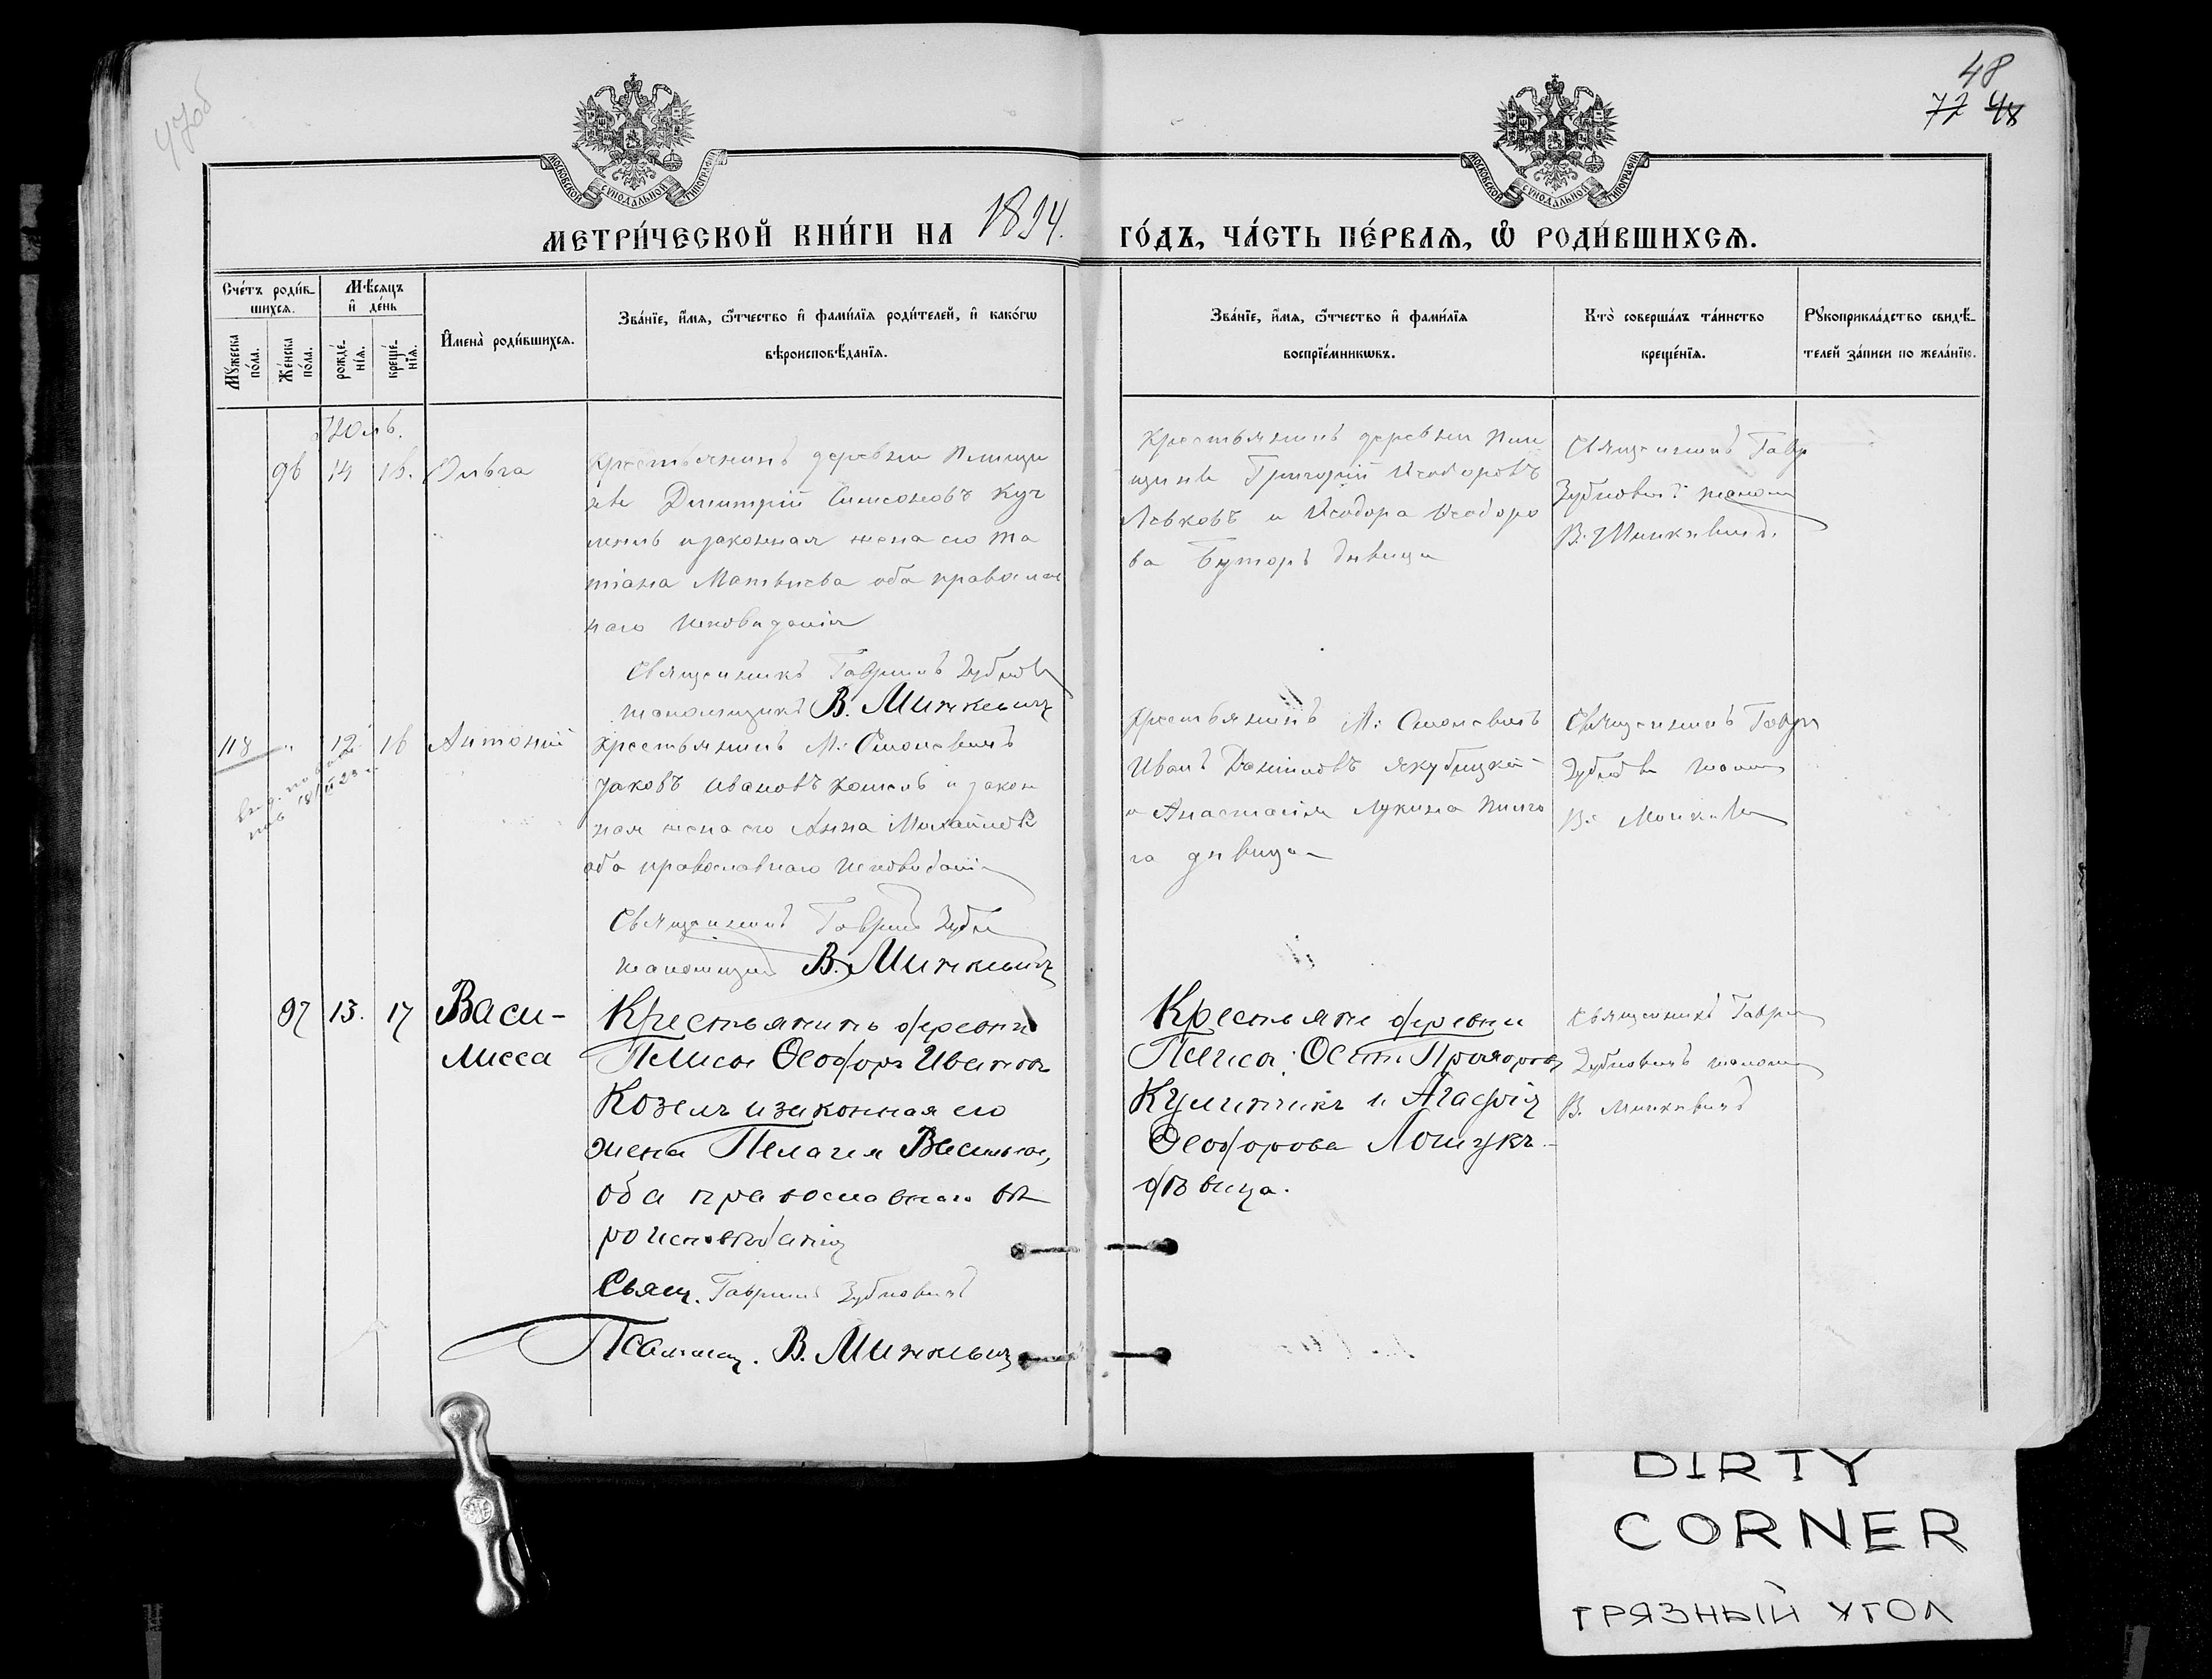 47об
48
72 48
МОСКОВСКОЙ СѴНОДАЛЬНОЙ ТИПОГРАФІИ
МОСКОВСКОЙ СѴНОДАЛЬНОЙ ТИПОГРАФІИ
МЕТРИ́ЧЕСКОЙ КНИ́ГИ НА 1894.
ГО́ДЪ, ЧА́СТЬ ПЕ́РВАѦ, Ѡ҆ РОДИ́ВШИХСѦ.
Сче́тъ роди́в-
шихсѧ.
Мꙋ́жеска по́ла.
Же́нска по́ла.
Мѣ́сѧцъ
и҆ де́нь
рожде́-
нїѧ.
креще́-
нїѧ.
И҆мена̀ роди́вшихсѧ.
Зва́нїе, и҆́мѧ, ѻ҆́тчество и҆ фами́лїѧ роди́телей, и҆ како́гѡ
вѣроисповѣ́данїѧ.
Зва́нїе, и҆́мѧ, ѻ҆́тчество и҆ фами́лїѧ
воспрїе́мникѡвъ.
Кто̀ соверша́лъ та́инство
креще́нїѧ.
Рꙋкоприкла́дство свидѣ́-
телей за́писи по жела́нїю.
Юль.
96 14 16. Ольга
Крестьянинъ деревни
Димитрій Симеоновъ Куч
и законная жена его Та
тіана Матвѣева оба православ
наго исповѣданія
Священникъ Гавріилъ Зубков
Псаломщикъ В. Минкевичъ
Крестьянинъ деревни
Григорій Ѳеодоровъ
Левковъ и Ѳеодора Ѳеодоро
ва Буторъ дѣвица
Священникъ Гавр
Зубковичъ псалом
В. Минкевичъ.
118 " 12 16 Антоній
Крестьянинъ М.
Іаковъ Ивановъ и закон
ная жена его Анна Михайлова
оба православнаго исповѣданія
Священникъ Гавріилъ Зубк
псаломщикъ В. Минкевичъ
Крестьянинъ М.
Иванъ Данииловъ Якубицкій
и Анастасія Лукина
га дѣвица
Священникъ Гавр
псалом
В. Минкев
97 13. 17 Васи-
лисса
Крестьянинъ деревни
Пелиса Ѳеодоръ Ивановъ
Козелъ и законная его
жена Пелагея Васильева,
оба православнаго вѣ
роисповѣданія
Свящ. Гавріилъ Зубковичъ
Псаломщ. В. Минкевичъ
Крестьяне деревни
Пелиса: Прохоровъ
и Агафія
Ѳеодорова
дѣвица.
Священникъ Гавр
Зубковичъ псалом
В. Минкевичъ
DIRTY
CORNER
ГРЯЗНЫЙ УГОЛ